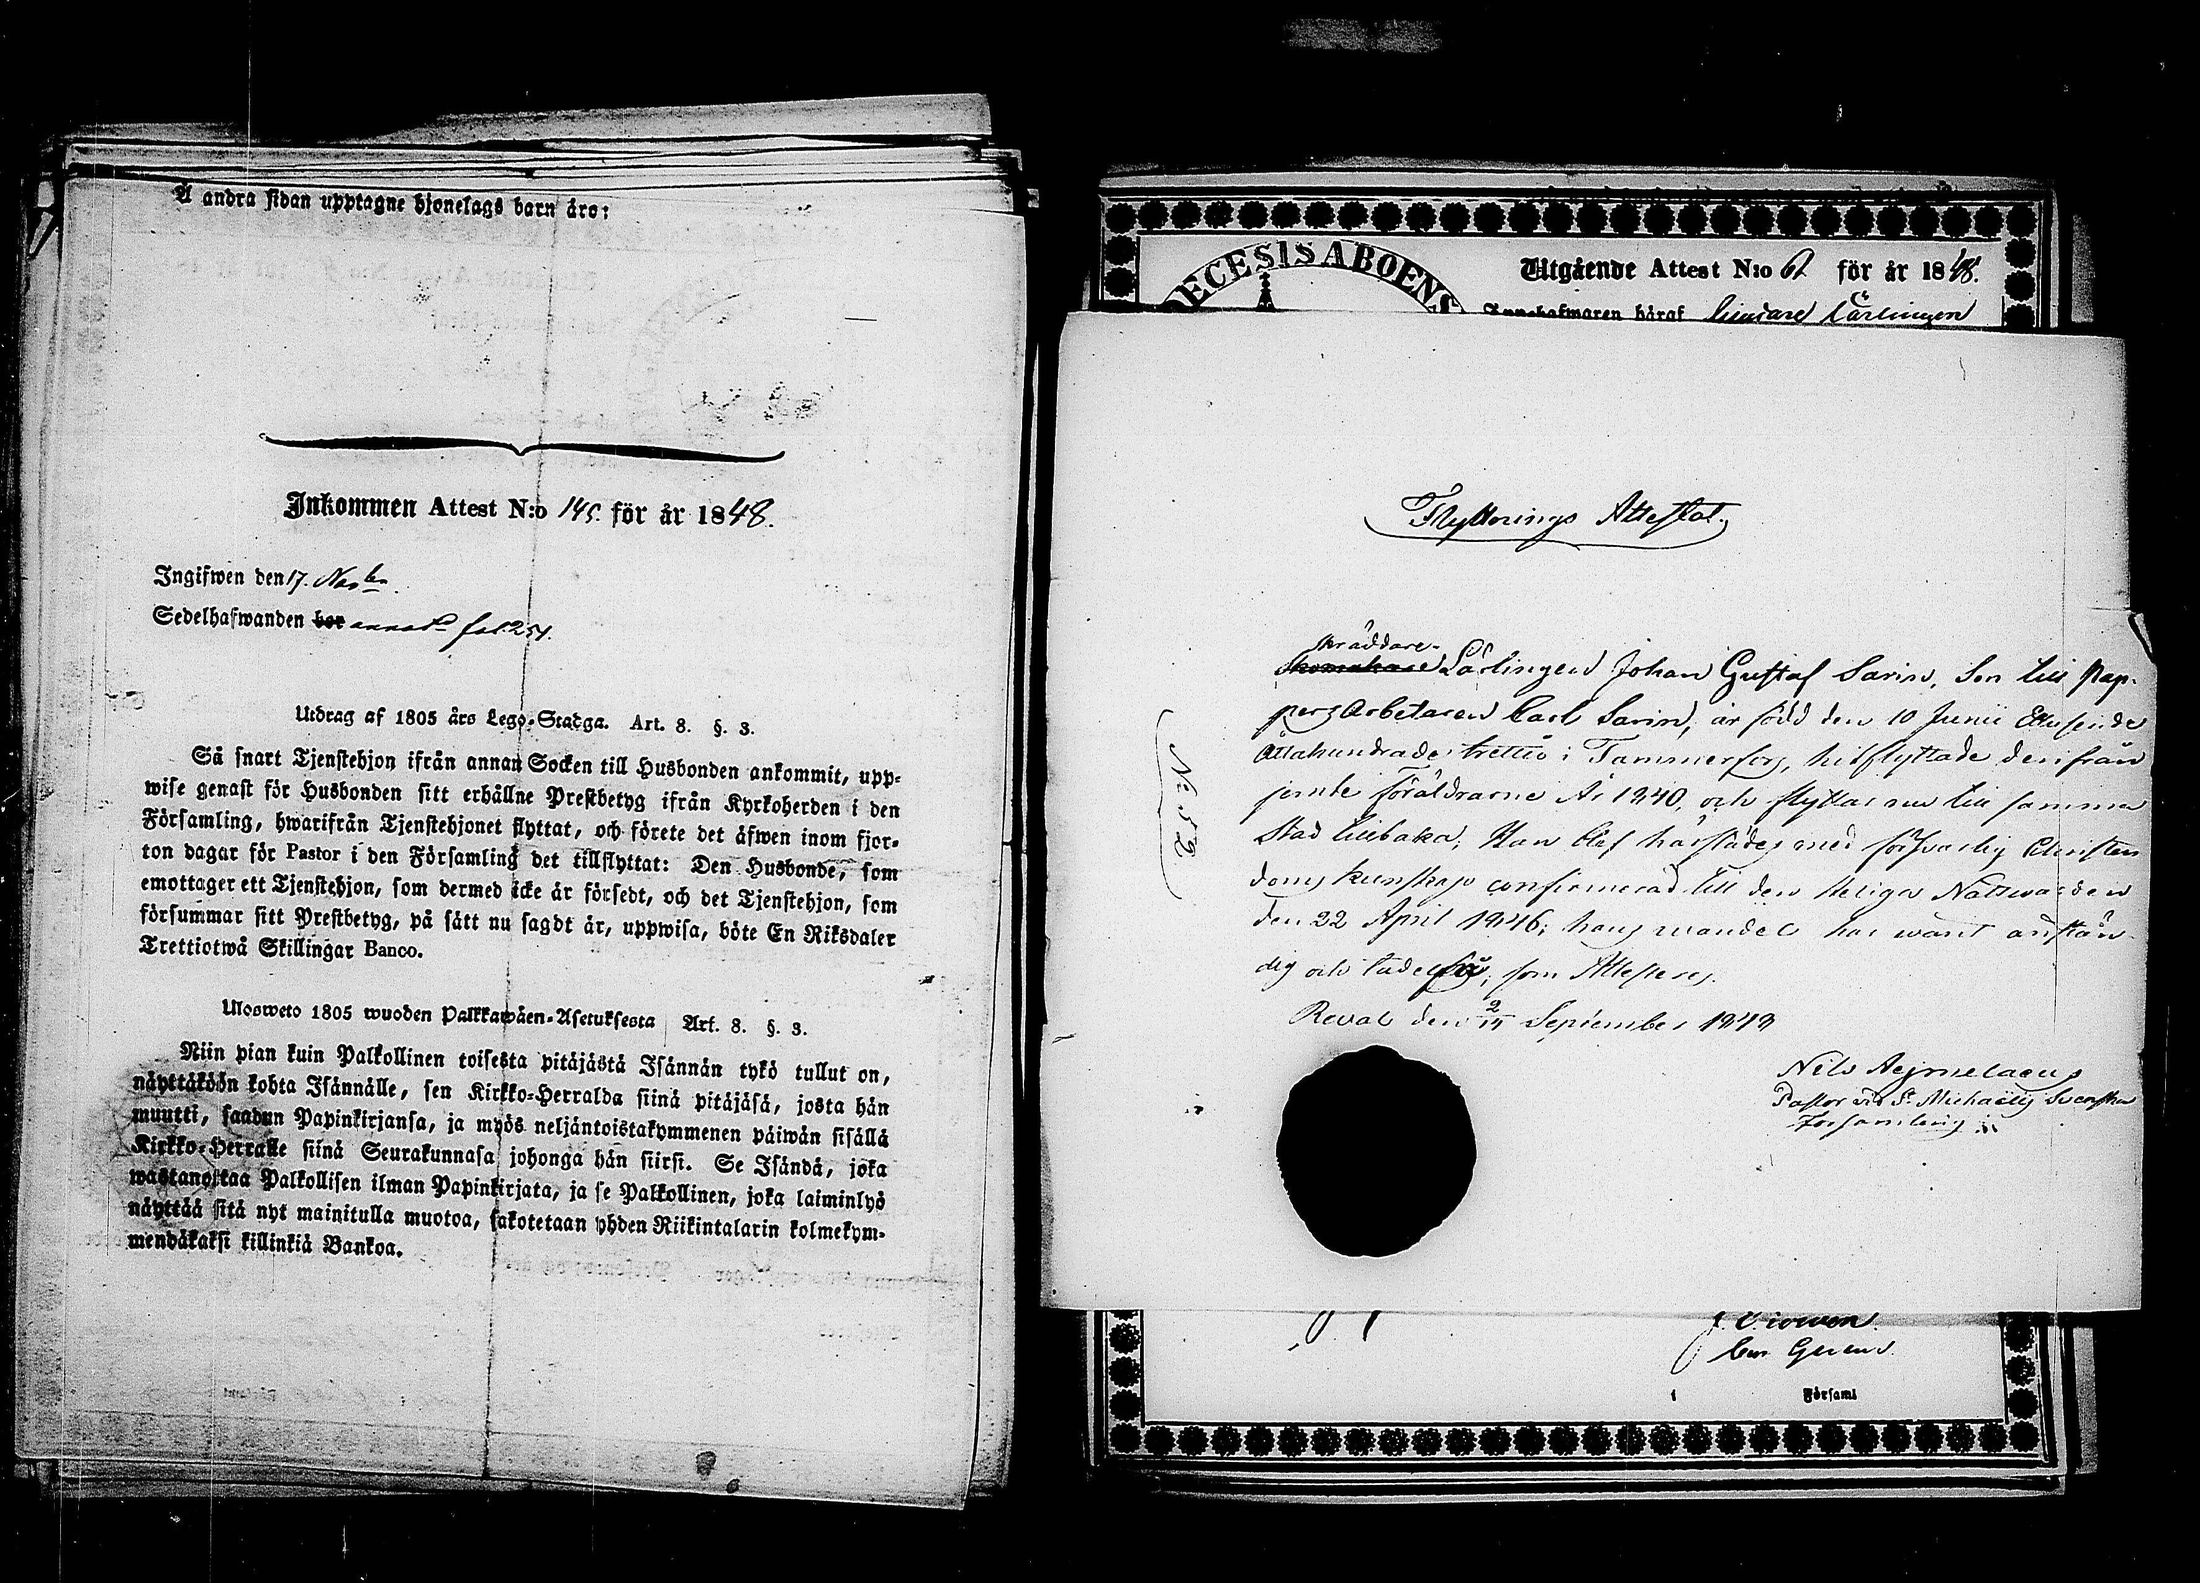 Å andra sidan upptagne hjonelags barn äro:
Inkommen Attest N:o 145. för år 1848.
Ingifwen den 17. Novbr.
Sedelhafwanden bor annot. fol. 251.
Utdrag af 1805 års Lego-Stadga. Art. 8. §. 3.
Så snart Tjenstehjon ifrån annan Socken till Husbonden ankommit, upp-
wise genast för Husbonden sitt erhållne Prestbetyg ifrån Kyrkoherden i den
Församling, hwarifrån Tjenstehjonet flyttat, och förete det äfwen inom fjor-
ton dagar för Pastor i den Församling det tillflyttat: Den Husbonde, som
emottager ett Tjenstehjon, som dermed icke är försedt, och det Tjenstehjon, som
försummar sitt Prestbetyg, på sätt nu sagdt är, uppwisa, böte En Riksdaler
Trettiotwå Skillingar Banco.
Ulosweto 1805 wuoden Palkkawäen-Asetuksesta Art. 8. §. 3.
Niin pian kuin Palkollinen toisesta pitäjästä Isännän tykö tullut on,
näyttäköön kohta Isännälle, sen Kirkko-Herralda siinä pitäjäsä, josta hän
muutti, saadun Papinkirjansa, ja myös neljäntoistakymmenen päiwän sisällä
Kirkko-Herralle siinä Seurakunnasa johonga hän siirsi. Se Isändä, joka
wastanottaa Palkollisen ilman Papinkirjata, ja se Palkollinen, joka laiminlyö
näyttää sitä nyt mainitulla muotoa, sakotetaan yhden Riikintalarin kolmekym-
mendäkaksi killinkiä Bankoa.
DECESIS ABOENS
Utgående Attest N:o 61 för år 1848.
Innehafwaren häraf Lärlingen
Flyttnings Attestat.
Skräddare-
Skomakare Lärlingen Johan Gustaf Sarin, Son till Pap-
persArbetaren Carl Sarin, är född den 10 Junii Ettusende
Åttahundrade trettio i Tammerfors, hitflyttade derifrån
jemte föräldrarne År 1840, och flyttar nu till samma
Stad tillbaka; Han blef härstädes med försvarlig Christen
doms kunskap confirmerad till den Heliga Nattvarden
den 22 April 1846; hans wandel har warit anstän
dig och tadelfri, som Attesteras.
Reval den 2/14 September 1848
Nils Aejmelaeus
Pastor vid St. Michaëlis Svenska
Församling
N: 52
Församl